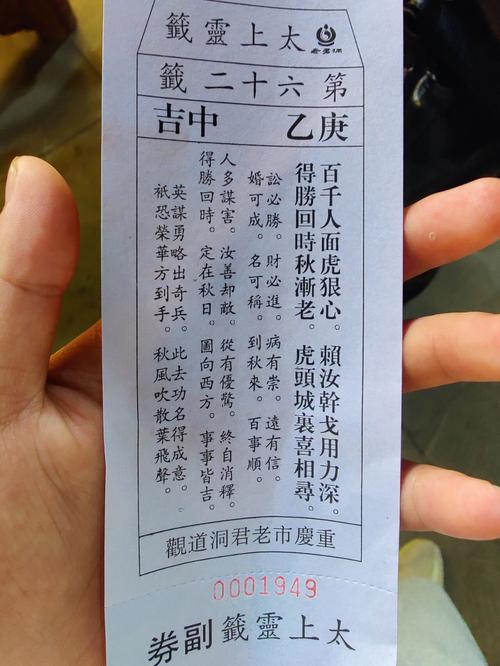 太上靈籤
老君洞
第六十二籤
庚乙 中吉
百千人面虎狠心。賴汝幹戈用力深。
得勝回時秋漸老。虎頭城裏喜相尋。
訟必勝。財必進。病有崇。遠有信。
婚可成。名可稱。到秋來。百事順。
人多謀害。汝善却敵。從有優驚。終自消釋。
得勝回時。定在秋日。圖向西方。事事皆吉。
英謀勇略出奇兵。此去功名得成意。
祇恐榮華方到手。秋風吹散葉飛聲。
重慶市老君洞道觀
0001949
太上靈籤副券